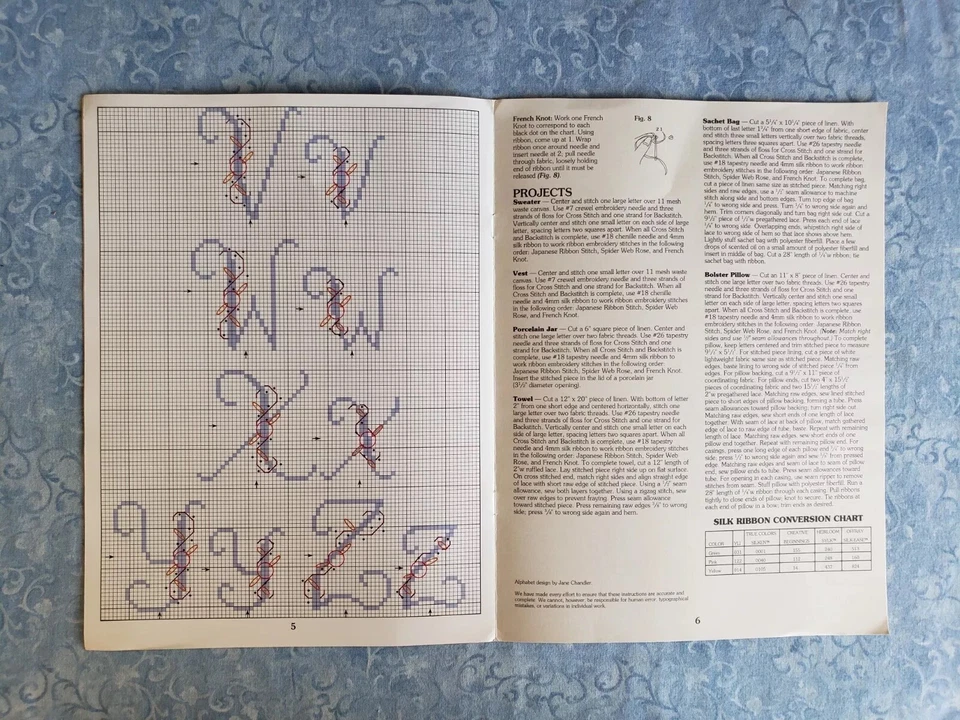 5
French Knot: Work one French
Knot to correspond to each
black dot on the chart. Using
ribbon, come up at 1. Wrap
ribbon once around needle and
insert needle at 2; pull needle
through fabric, loosely holding
end of ribbon until it must be
released (Fig. 8).
Fig. 8
PROJECTS
Sweater — Center and stitch one large letter over 11 mesh
waste canvas. Use #7 crewel embroidery needle and three
strands of floss for Cross Stitch and one strand for Backstitch.
Vertically center and stitch one small letter on each side of large
letter, spacing letters two squares apart. When all Cross Stitch
and Backstitch is complete, use #18 chenille needle and 4mm
silk ribbon to work ribbon embroidery stitches in the following
order: Japanese Ribbon Stitch, Spider Web Rose, and French
Knot.
Vest — Center and stitch one small letter over 11 mesh waste
canvas. Use #7 crewel embroidery needle and three strands of
floss for Cross Stitch and one strand for Backstitch. When all
Cross Stitch and Backstitch is complete, use #18 chenille
needle and 4mm silk ribbon to work ribbon embroidery stitches
in the following order: Japanese Ribbon Stitch, Spider Web
Rose, and French Knot.
Porcelain Jar — Cut a 6" square piece of linen. Center and
stitch one large letter over two fabric threads. Use #26 tapestry
needle and three strands of floss for Cross Stitch and one
strand for Backstitch. When all Cross Stitch and Backstitch is
complete, use #18 tapestry needle and 4mm silk ribbon to
work ribbon embroidery stitches in the following order:
Japanese Ribbon Stitch, Spider Web Rose, and French Knot.
Insert the stitched piece in the lid of a porcelain jar
(3½" diameter opening).
Towel — Cut a 12" x 20" piece of linen. With bottom of letter
2" from one short edge and centered horizontally, stitch one
large letter over two fabric threads. Use #26 tapestry needle
and three strands of floss for Cross Stitch and one strand for
Backstitch. Vertically center and stitch one small letter on each
side of large letter, spacing letters two squares apart. When all
Cross Stitch and Backstitch is complete, use #18 tapestry
needle and 4mm silk ribbon to work ribbon embroidery stitches
in the following order: Japanese Ribbon Stitch, Spider Web
Rose, and French Knot. To complete towel, cut a 12" length of
2"w ruffled lace. Lay stitched piece right side up on flat surface.
On cross stitched end, match right sides and align straight edge
of lace with short raw edge of stitched piece. Using a ½" seam
allowance, sew both layers together. Using a zigzag stitch, sew
over raw edges to prevent fraying. Press seam allowance
toward stitched piece. Press remaining raw edges to
wrong side; press to wrong side again and hem.
Alphabet design by Jane Chandler.
We have made every effort to ensure that these instructions are accurate and
complete. We cannot, however, be responsible for human error, typographical
mistakes, or variations in individual work.
Sachet Bag — Cut a piece of linen. With
bottom of last letter from one short edge of fabric, center
and stitch three small letters vertically over two fabric threads,
spacing letters two squares apart. Use #26 tapestry needle
and three strands of floss for Cross Stitch and one strand for
Backstitch. When all Cross Stitch and Backstitch is complete,
use #18 tapestry needle and 4mm silk ribbon to work ribbon
embroidery stitches in the following order: Japanese Ribbon
Stitch, Spider Web Rose, and French Knot. To complete bag,
cut a piece of linen same size as stitched piece. Matching right
sides and raw edges, use a seam allowance to machine
stitch along side and bottom edges. Turn top edge of bag
to wrong side and press. Turn to wrong side again and
hem. Trim corners diagonally and turn bag right side out. Cut a
piece of pregathered lace. Press each end of lace
to wrong side. Overlapping ends, whipstitch right side of
lace to wrong side of hem so that lace shows above hem.
Lightly stuff sachet bag with polyester fiberfill. Place a few
drops of scented oil on a small amount of polyester fiberfill and
insert in middle of bag. Cut a 28" length of ribbon; tie
sachet bag with ribbon.
Bolster Pillow — Cut an 11" x 8" piece of linen. Center and
stitch one large letter over two fabric threads. Use #26 tapestry
needle and three strands of floss for Cross Stitch and one
strand for Backstitch. Vertically center and stitch one small
letter on each side of large letter, spacing letters two squares
apart. When all Cross Stitch and Backstitch is complete, use
#18 tapestry needle and 4mm silk ribbon to work ribbon
embroidery stitches in the following order: Japanese Ribbon
Stitch, Spider Web Rose, and French Knot. (Note: Match right
sides and use ½" seam allowances throughout.) To complete
pillow, keep letters centered and trim stitched piece to measure
For stitched piece lining, cut a piece of white
lightweight fabric same size as stitched piece. Matching raw
edges, baste lining to wrong side of stitched piece from
edges. For pillow backing, cut a piece of
coordinating fabric. For pillow ends, cut two
pieces of coordinating fabric and two lengths of
2"w pregathered lace. Matching raw edges, sew lined stitched
piece to short edges of pillow backing, forming a tube. Press
seam allowances toward pillow backing; turn right side out.
Matching raw edges, sew short ends of one length of lace
together. With seam of lace at back of pillow, match gathered
edge of lace to raw edge of tube; baste. Repeat with remaining
length of lace. Matching raw edges, sew short ends of one
pillow end together. Repeat with remaining pillow end. For
casings, press one long edge of each pillow end to wrong
side; press to wrong side again and sew from pressed
edge. Matching raw edges and seam of lace to seam of pillow
end, sew pillow ends to tube. Press seam allowances toward
tube. For opening in each casing, use seam ripper to remove
stitches from seam. Stuff pillow with polyester fiberfill. Run a
28" length of ribbon through each casing. Pull ribbons
tightly to close ends of pillow; knot to secure. Tie ribbons at
each end of pillow in a bow; trim ends as desired.
SILK RIBBON CONVERSION CHART
COLOR
TRUE COLORS
CREATIVE
BEGINNINGS
HEIRLOOM
Green
Pink
Yellow
6